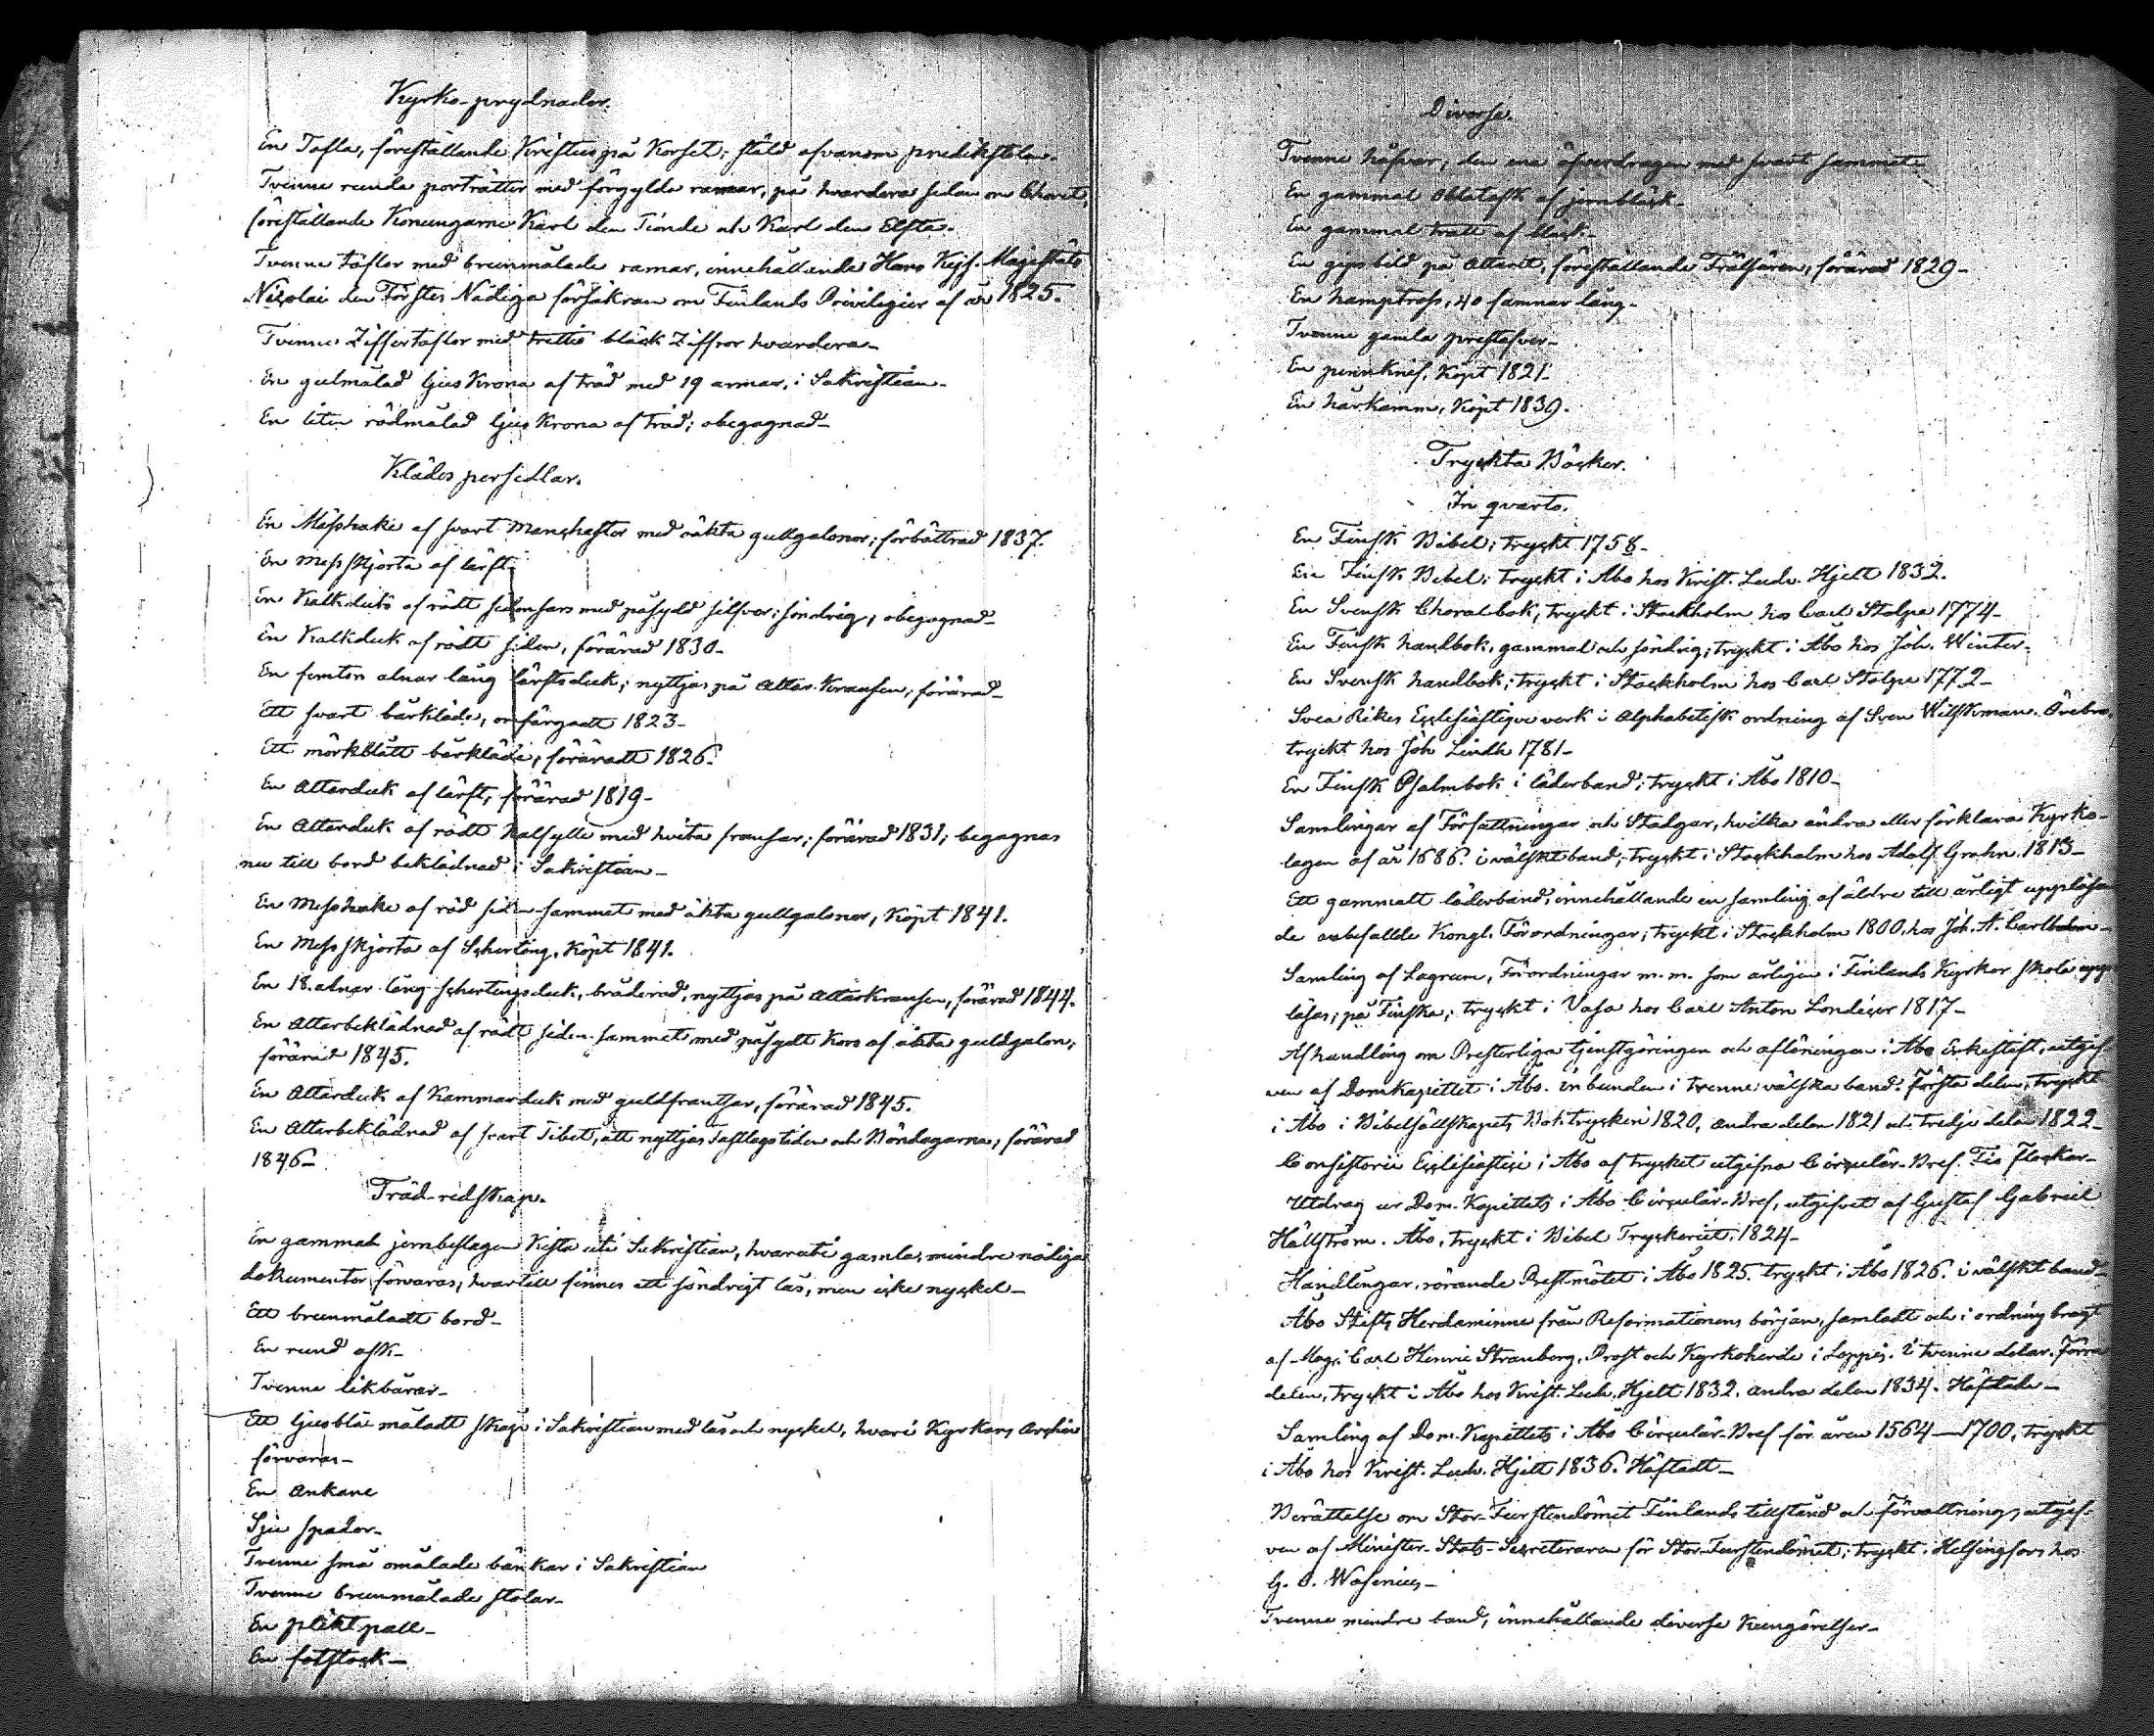 Kyrko-prydnader.
En Tafla, föreställande Kristus på Korset; stäld ofvanom predikstolen.
Tvenne runda porträtter med förgylda ramar, på hvardera sidan om Choret,
föreställande Konungarne Karl den Tionde och Karl den Elfte.
Tvenne täflor med brunmålade ramar, innehållande Hans Kejs. Majestäts
Nicolai den Förstes Nådiga försäkran om Finlands Privilegier af år 1825.
Tvenne Ziffertaflor med trettio bläck Ziffror hvardera_
En gulmålad ljus Krona af träd med 19 armar, i Sakristian_
En liten rödmålad ljus Krona af träd; obegagnad_
Klädes persedlar.
En Messhake af svart Manchester med äkta gullgaloner; förbättrad 1837.
En Mess skjorta af lärft_
En Kalkduk af rödt sidensars med påsydd silfver; söndrig, obegagnad_
En Kalkduk af rödt siden, förärad 1830_
En femton alnar lång lärftsduk; nyttjas på Altar-Kransen; förärad_
Ett svart bårkläde, omfärgadt 1823_
Ett mörkblått bårkläde, föräradt 1826.
En Altarduk af lärft, förärad 1819_
En Altarduk af rödt halfylle med hvita fransar; förärad 1831; begagnas
nu till bord beklädnad i Sakristian_
En Messhake af röd siden-sammet med äkta gullgaloner, Köpt 1841.
En Mess skjorta af Scherting, Köpt 1841.
En 18. alnar lång schertingsduk, bråderad, nyttjas på Altarkransen, förärad 1844.
En Altarbeklädnad af rödt siden-sammet med påsydt Kors af äkta guldgalon,
förärad 1845.
En Altarduk af Kammarduk med guldfrantsar, förärad 1845.
En Altarbeklädnad af svart Tibet, att nyttjas Fastlags tiden och Böndagarna; förärad
1846_
Träd-redskap.
En gammal jernbeslagen Kista uti Sakristian, hvaruti gamla, mindre nödiga
dokumenter förvaras, hvartill finnes ett söndrigt lås, men icke nyckel_
Ett brunmåladt bord_
En rund ask_
Tvenne likbårar_
Ett ljusblå måladt skåp i Sakristian med lås och nyckel, hvari Kyrkans Archiv
förvaras_
En Ankare
Sju spador_
Tvenne små omålade bänkar i Sakristian
Tvenne brunmålade stolar_
En pliktpall_
En fotstock_
Diverse.
Tvenne håfvar, den ena öfverdragen med svart sammet_
En gammal Oblatask af jernbläck_
En gammal tratt af bläck_
En gipsbild på Altaret, föreställande Frälsaren, förärad 1829_
En hamptross, 40 famnar lång_
Tvenne gamla prestafver_
En pennknif, Köpt 1821_
En hårkamm, Köpt 1839.
Tryckta Böcker.
In qvarto.
En Finsk Bibel; tryckt 1758_
En Finsk Bibel; tryckt i Åbo hos Krist. Ludv. Hjelt 1832.
En Svensk Choralbok, tryckt i Stockholm hos Carl Stolpe 1774_
En Finsk handbok, gammal och söndrig; tryckt i Åbo hos Joh. Winter_
En Svensk handbok; tryckt i Stockholm hos Carl Stolpe 1772_
Svea Rikes Ecclesiastique verk i Alphabetisk ordning af Sven Wilskman. Örebro,
tryckt hos Joh Lindh 1781_
En Finsk Psalmbok i läderband; tryckt i Åbo 1810_
Samlingar af Författningar och Stadgar, hvilka ändra eller förklara Kyrko-
lagen af år 1686. i välskt band; tryckt i Stockholm hos Adolf Grahn 1813_
Ett gammalt läderband, innehållande en samling af äldre till årligt uppläsan
de anbefallde Kongl. Förordningar; tryckt i Stockholm 1800, hos Joh. A. Carlbohm_
Samling af Lagrum, Förordningar m. m. som årligen i Finlands Kyrkor skola upp-
läsas; på Finska; tryckt i Vasa hos Carl Anton Londicer 1817_
Afhandling om Presterliga tjenstgöringen och aflöningen i Åbo Erkestift, utgif-
ven af Domkapitlet i Åbo. inbunden i trenne välska band. Första delen, tryckt
i Åbo i Bibelsällskapets Bok-tryckeri 1820, andra delen 1821 och tredje delen 1822_
Consistorii Ecclesiastici i Åbo af trycket utgifna Circulär-Bref. Tio Flockar_
Utdrag ur Dom-Kapitlets i Åbo Circulär-Bref, utgifvet af Gustaf Gabriel
Hällström. Åbo, tryckt i Bibel Tryckeriet, 1824_
Handlingar, rörande Prestmötet i Åbo 1825. tryckt i Åbo 1826. i välskt band_
Åbo Stifts Herdaminne från Reformationens början, samladt och i ordning bragt
af Mag. Carl Henric Stranberg, Prost och Kyrkoherde i Loppis. i tvenne delar. Förra
delen, tryckt i Åbo hos Krist. Ludv. Hjelt 1832, andra delen 1834. Häftade_
Samling af Dom-Kapitlets i Åbo Circulär-Bref för åren 1564_1700, tryckt
i Åbo hos Krist. Ludv. Hjelt 1836. Häftadt_
Berättelse om Stor-Furstendömet Finlands tillstånd och Förvaltning, utgif-
ven af Minister-Stats-Secreteraren för Stor-Furstendömet; tryckt i Helsingfors hos
G. O. Wasenius_
Tvenne mindre band, innehållande diverse Kungörelser_